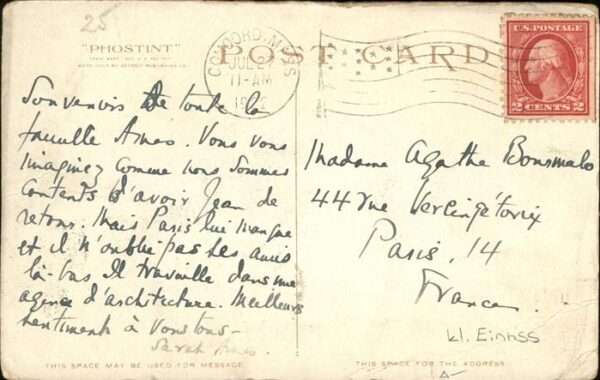 25
"PHOSTINT"
POST CARD
CONCORD, MASS
JUL 2
11-AM
U.S. POSTAGE
2 CENTS 2
Souvenirs de toute la
famille Ames. Vous vous
imaginez comme nous sommes
contents d'avoir Jean de
retour. Mais Paris lui manque
et il n'oublie pas ses amis
là-bas Il travaille dans une
agence d'architecture. Meilleurs
sentiments à vous tous-
Sarah Ames.
Madame Agathe
44 rue Vercingétorix
Paris. 14
France.
THIS SPACE MAY BE USED FOR MESSAGE.
THIS SPACE FOR THE ADDRESS.